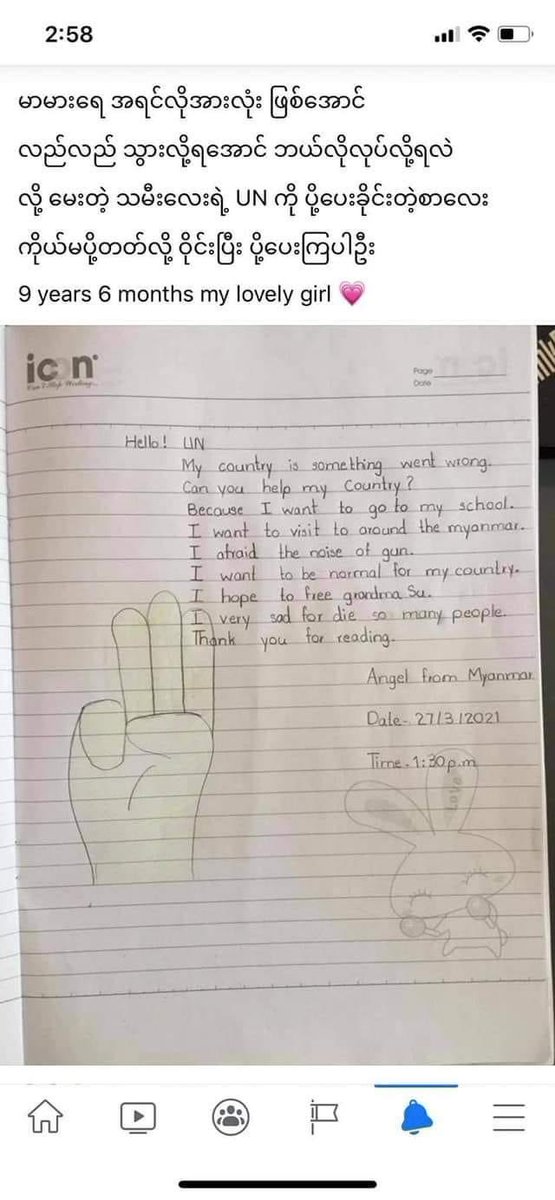 2:58
မာမားရေ အရင်လိုအားလုံး ဖြစ်အောင်
လည်လည် သွားလို့ရအောင် ဘယ်လိုလုပ်လို့ရလဲ
လို့ မေးတဲ့ သမီးလေးရဲ့ UN ကို ပို့ပေးခိုင်းတဲ့စာလေး
ကိုယ်မပို့တတ်လို့ ဝိုင်းပြီး ပို့ပေးကြပါဦး
9 years 6 months my lovely girl 💗
icon
Page
Date
Hello! UN
My country is something went wrong.
Can you help my Country?
Because I want to go to my school.
I want to visit to around the myanmar.
I afraid the noise of gun.
I want to be normal for my country.
I hope to free grandma Su.
I very sad for die so many people.
Thank you for reading.
Angel from Myanmar
Date- 27/3/2021
Time. 1:30p.m
Love